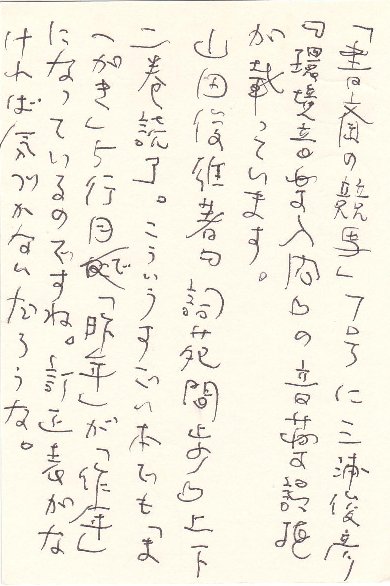 「書斎の競馬」7号に三浦俊彦
『環境音楽入悶』の音
が載っています。
山田俊雄著『詞苑間歩』上下
二巻読了。こういうすごい本でも「ま
へがき」5行目で「昨年」が「作年」
になっているのですね。訂正表がな
ければ気づかないだろうな。